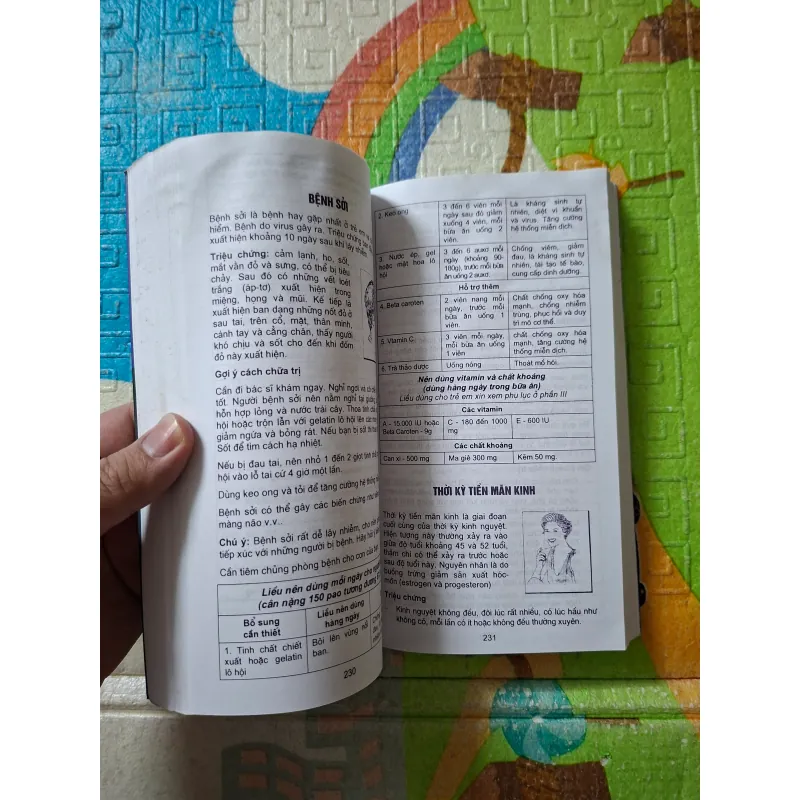 BỆNH SỞI
Bệnh sởi là bệnh hay gặp nhất ở trẻ em và
hiểm. Bệnh do virus gây ra. Triệu chứng ban
xuất hiện khoảng 10 ngày sau khi lây nhiễm.
Triệu chứng: cảm lạnh, ho, sốt,
mắt vằn đỏ và sưng, có thể bị tiêu
chảy. Sau đó có những vết loét
trắng (áp-tơ) xuất hiện trong
miệng, họng và mũi. Kế tiếp là
xuất hiện ban dạng những nốt đỏ ở
sau tai, trên cổ, mặt, thân mình,
cánh tay và cẳng chân, thấy người
khó chịu và sốt cho đến khi đốm
đỏ này xuất hiện.
Gợi ý cách chữa trị
Cần đi bác sĩ khám ngay. Nghỉ ngơi và
tốt. Người bệnh sởi nên nằm nghỉ tại giường
hỗn hợp lỏng và nước trái cây. Thoa tinh
hội hoặc trộn lẫn với gelatin lô hội lên các
giảm ngứa và bỏng rát. Nếu bạn bị sốt thì
Sốt để tìm cách hạ nhiệt.
Nếu bị đau tai, nên nhỏ 1 đến 2 giọt tinh
hội vào lỗ tai cứ 4 giờ một lần.
Dùng keo ong và tỏi để tăng cường hệ thống
Bệnh sởi có thể gây các biến chứng như viêm
màng não v.v..
Chú ý: Bệnh sởi rất dễ lây nhiễm, cho nên
tiếp xúc với những người bị bệnh. Hãy hỏi
Cần tiêm chủng phòng bệnh cho con của bạn.
Liều nên dùng mỗi ngày cho người
(cân nặng 150 pao tương đương
Bổ sung cần thiết
Liều nên dùng hàng ngày
1. Tinh chất chiết xuất hoặc gelatin lô hội
Bôi lên vùng nổi ban.
230
2. Keo ong
3 đến 6 viên mỗi ngày sau đó giảm xuống 4 viên, mỗi bữa ăn uống 2 viên.
Là kháng sinh tự nhiên, diệt vi khuẩn và virus. Tăng cường hệ thống miễn dịch.
3. Nước ép, gel hoặc mật hoa lô hội
3 đến 6 auxơ mỗi ngày (khoảng 90-180g), trước mỗi bữa ăn uống 2 auxơ.
Chống viêm, giảm đau, là kháng sinh tự nhiên, tái tạo tế bào, cung cấp dinh dưỡng.
Hỗ trợ thêm
4. Beta caroten
2 viên nang mỗi ngày, trước mỗi bữa ăn uống 1 viên.
Chất chống oxy hóa mạnh, chống nhiễm trùng, phục hồi và duy trì mô cơ thể.
5. Vitamin C
3 viên mỗi ngày, mỗi bữa ăn uống 1 viên
chất chống oxy hóa mạnh, tăng cường hệ thống miễn dịch.
6. Trà thảo dược
Uống nóng
Thoát mồ hôi.
Nên dùng vitamin và chất khoáng
(dùng hàng ngày trong bữa ăn)
Liều dùng cho trẻ em xin xem phụ lục ở phần III
Các vitamin
A - 15.000 IU hoặc Beta Caroten - 9g
C - 180 đến 1000 mg
E - 600 IU
Các chất khoáng
Can xi - 500 mg
Ma giê 300 mg
Kẽm 50 mg.
THỜI KỲ TIỀN MÃN KINH
Thời kỳ tiền mãn kinh là giai đoạn
cuối cùng của thời kỳ kinh nguyệt.
Hiện tượng này thường xảy ra vào
giữa độ tuổi khoảng 45 và 52 tuổi,
thậm chí có thể xảy ra trước hoặc
sau độ tuổi này. Nguyên nhân là do
buồng trứng giảm sản xuất hóc-
môn (estrogen và progesteron)
Triệu chứng
- Kinh nguyệt không đều, đôi lúc rất nhiều, có lúc hầu như
không có, mỗi lần có ít hoặc không đều thường xuyên.
231